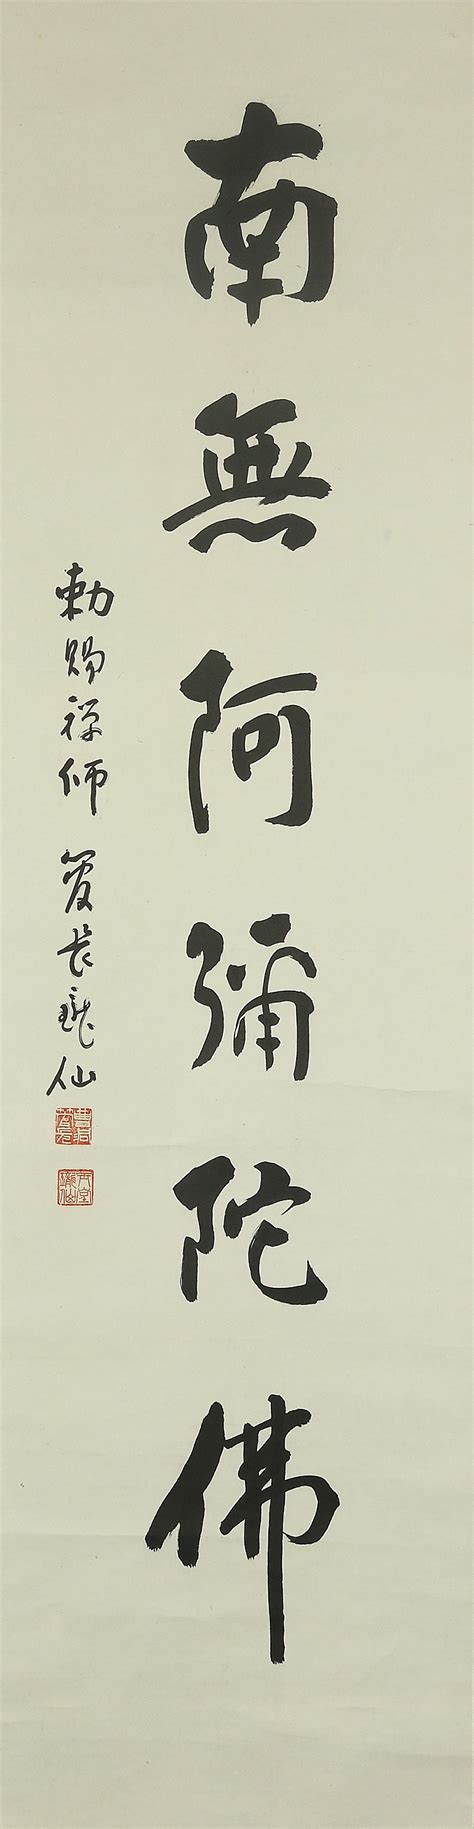 南無阿彌陀佛
勅賜禅師 管長瓏仙